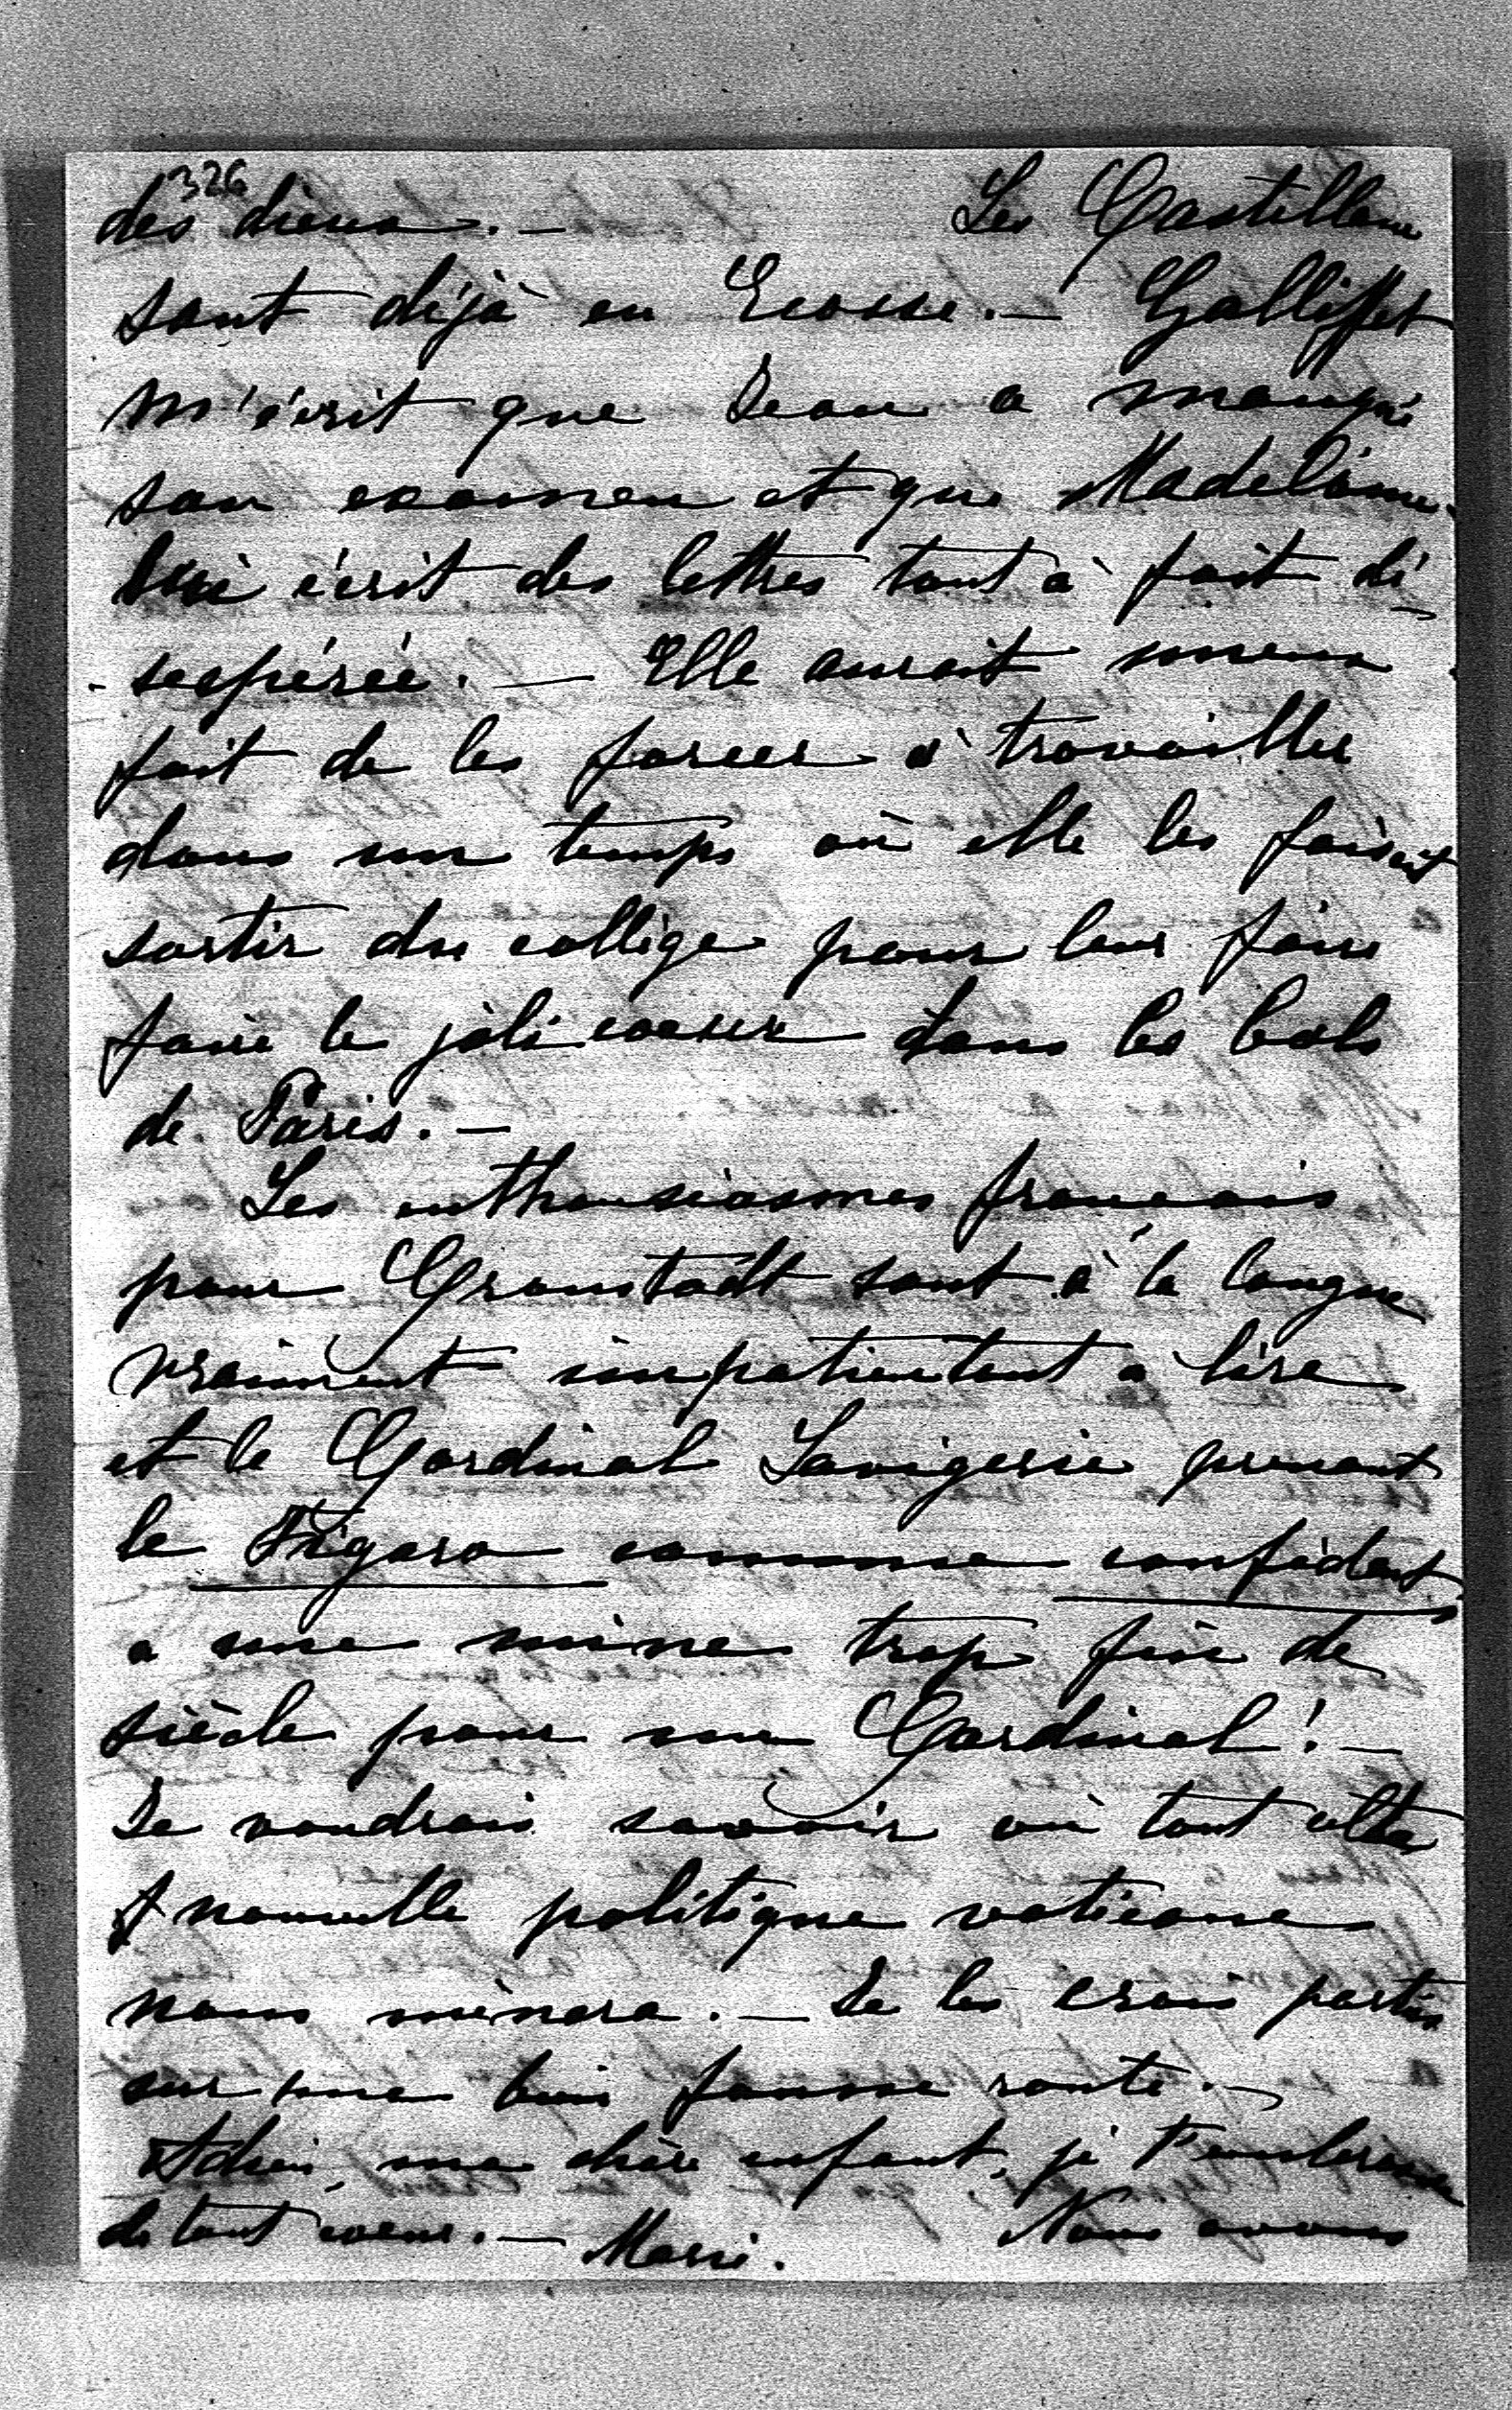 326
des dieux. — Les Castellane
sont déjà en Ecosse. — Galliffet
m'écrit que Jean a manqué
son examen et que Madelaine
lui écrit des lettres tout à fait dé
- sespérée. — Elle aurait mieux
fait de les forcer à travailler
dans un temps où elle les faisait
sortir du collège pour leur faire
faire le joli coeur dans les bals
de Paris. —
Les enthousiasmes français
pour Cronstadt sont à la longue
vraiment impatientant à lire
et le Cardinal Lavigerie prenant
le Figaro comme confident
a une mine trop fin de
siècle pour un Cardinal! —
Je voudrais savoir où tout cette
nouvelle politique vaticane
nous mènera. — Je les crois partis
sur une bien fausse route. —
Adieu, ma chère enfant, je t'embrasse
de tout coeur. — Marie. Nous avons